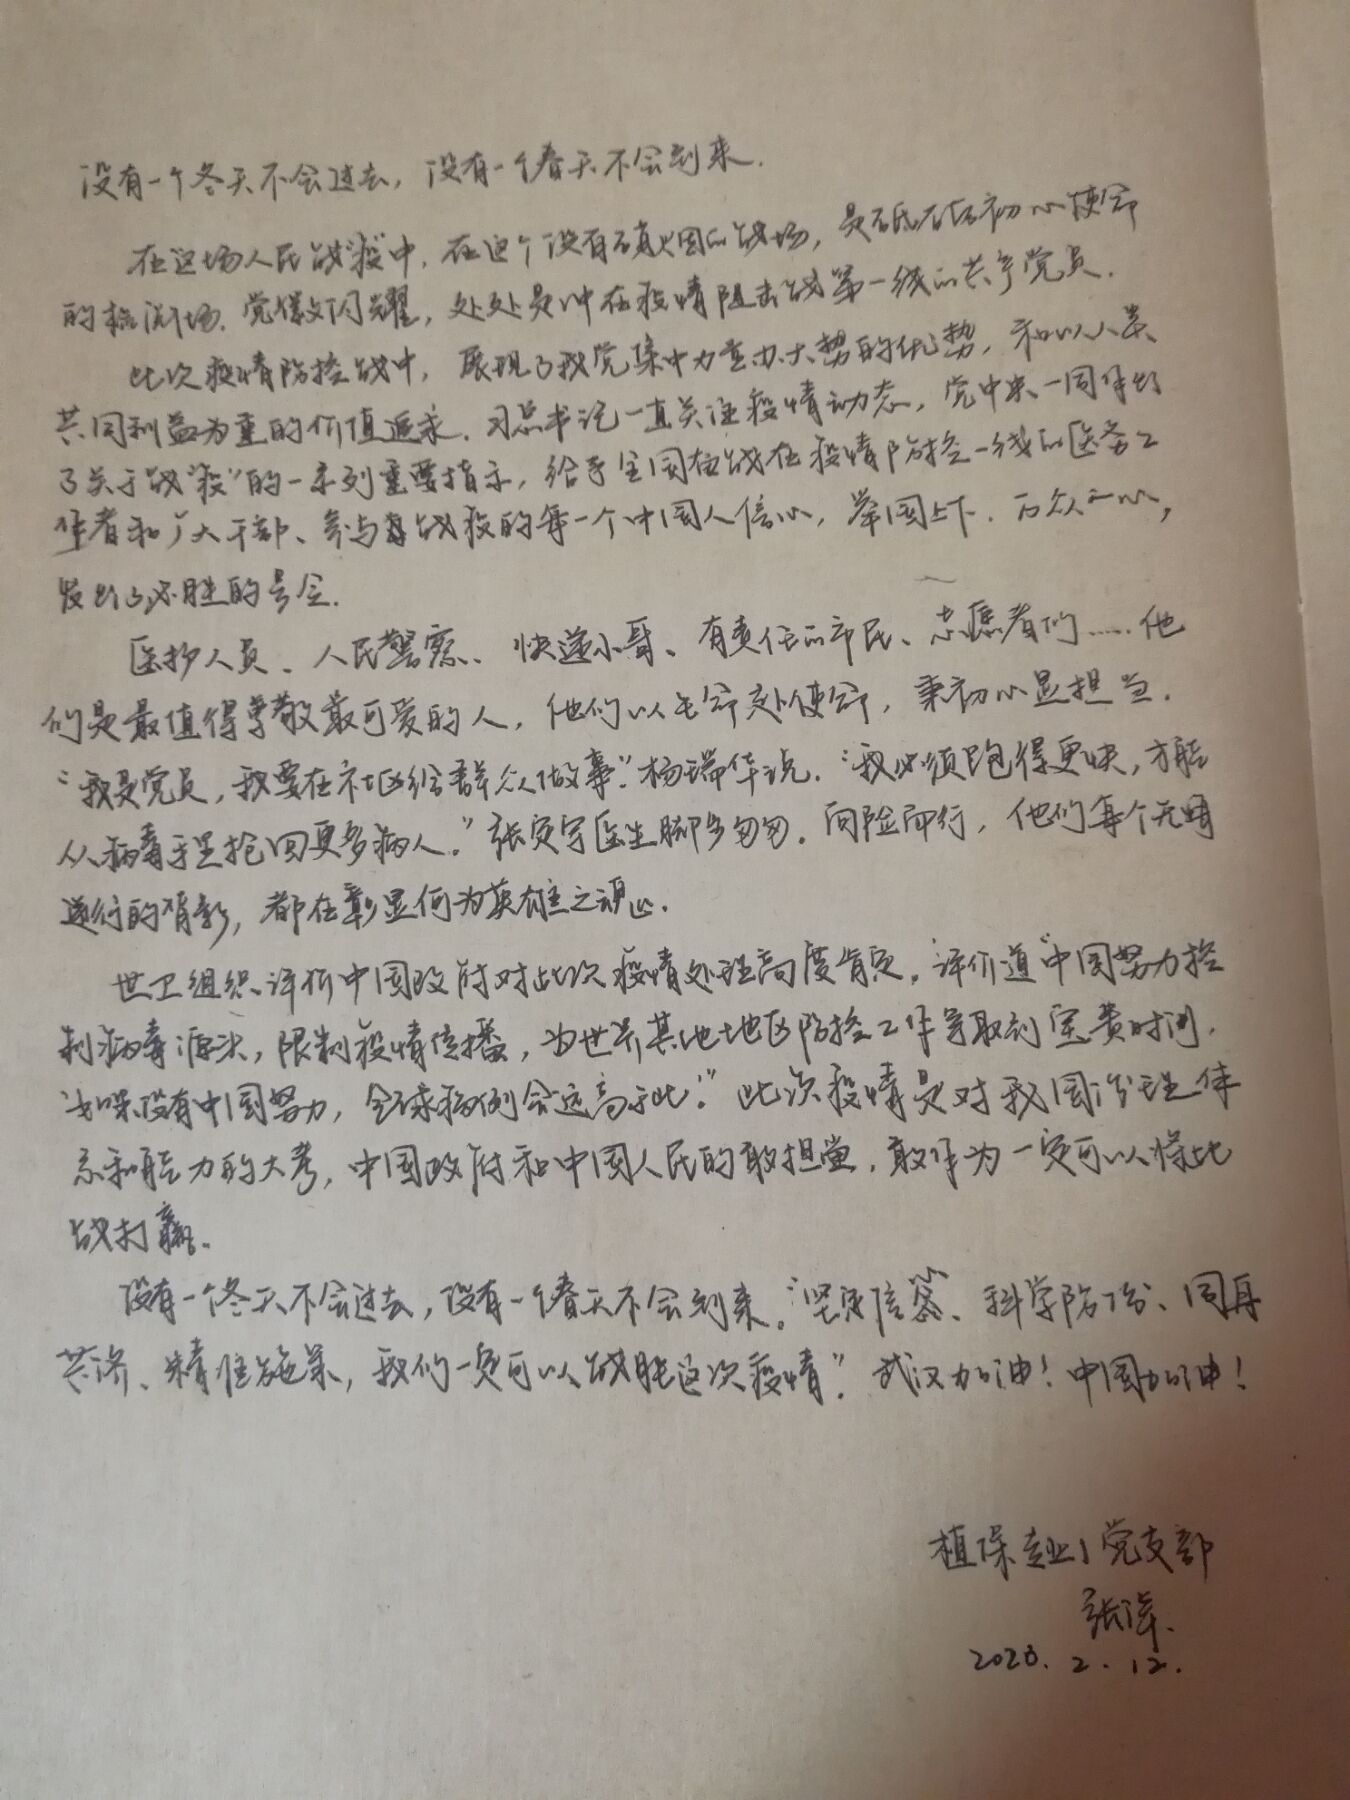 没有一个冬天不会过去，没有一个春天不会到来.
在这场人民战"疫"中，在这个没有硝烟的战场，是砥砺初心使命
的检测场.党徽闪耀，处处是冲在疫情阻击战第一线的共产党员.
此次疫情防控战中，展现了我党集中力量办大势的优势，和以人类
共同利益为重的价值追求.习总书记一直关注疫情动态，党中央一同作出
了关于战"疫"的一系列重要指示，给予全国在战在疫情防控一线的医务工
作者和广大干部、参与战疫的每一个中国人信心，举国上下.万众一心，
发出了必胜的号令.
医护人员、人民警察、快递小哥、有责任的市民、志愿者们……他
们是最值得尊敬最可爱的人，他们以生命赴使命，秉初心显担当.
"我是党员，我要在社区给群众做事."杨瑞华说."我必须跑得更快，才能
从病毒手里抢回更多病人."张定宇医生脚步匆匆.向险而行，他们每个无畏
逆行的背影，都在彰显何为英雄之魂.
世卫组织评价中国政府对此次疫情处理高度肯定，评价道"中国努力控
制病毒源头，限制疫情传播，为世界其他地区防控工作争取到宝贵时间.
如果没有中国努力，全球病例会远高于此."此次疫情是对我国治理体
系和能力的大考，中国政府和中国人民的敢担当.敢作为一定可以将此
战打赢.
没有一个冬天不会过去，没有一个春天不会到来."坚定信心、科学防治、同舟
共济、精准施策，我们一定可以战胜这次疫情".武汉加油！中国加油！
植保专业1党支部
张洋.
2020.2.12.